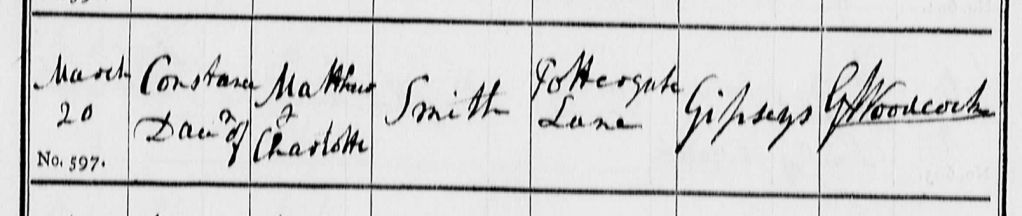 March
20
No. 597.
Constance
Daur of
Matthew
&
Charlotte
Smith
Pottergate
Lane
Gipseys
G Woodcock